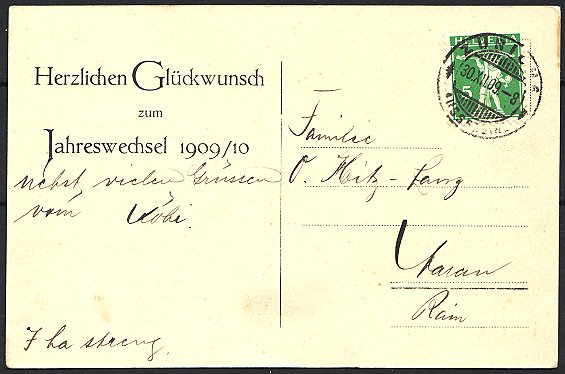 Herzlichen Glückwunsch
zum
Jahreswechsel 1909/10
nebst vielen Grüssen
vom Köbi.
I ha streng.
HELVETIA
5
30.XII.09.-8
Familie
O. Hitz-Lang
Aarau
Rain